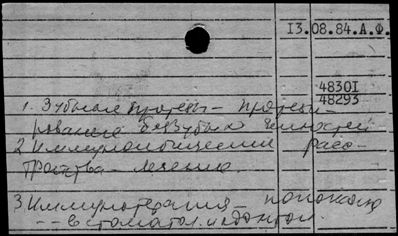 13.08.84.А.Ф.
48301
48293
1. Зубные протезы - протези-
рование беззубых челюстей
2 Иммунологические расс-
тройства - лечение.
3 Иммунотерапия -
- в стоматол. и